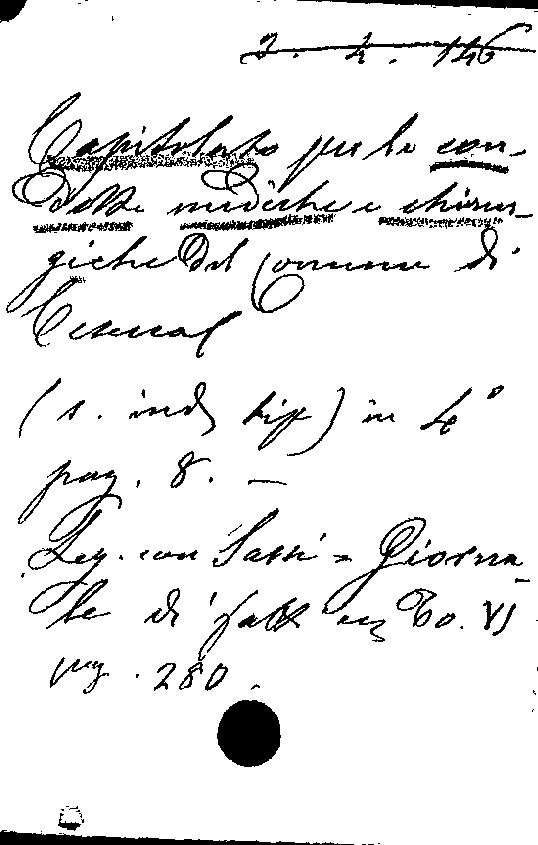 2. 4. 146
Capitolato per le con-
dotte mediche e chirur-
giche del Comune di
Cesena
(s. ind. tip) in 4°
pag. 8. —
Leg. con Sassi = Giorna-
le di fatti ecc To. VI
pag. 280.